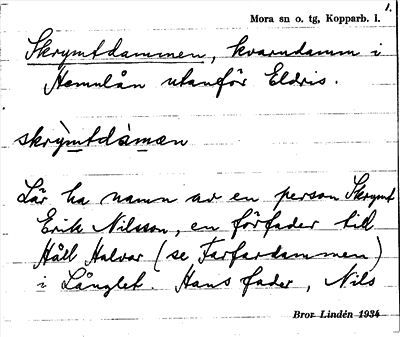 1.
Mora sn o. tg, Kopparb. l.
Skrymtdammen, kvarndamm i
Hemulån utanför Eldris.
skrỳmtdàmən
Lär ha namn av en person Skrymt
Erik Nilsson, en förfader till
Håll Halvar (se Farfardammen)
i Långlet. Hans fader, Nils
Bror Lindén 1934